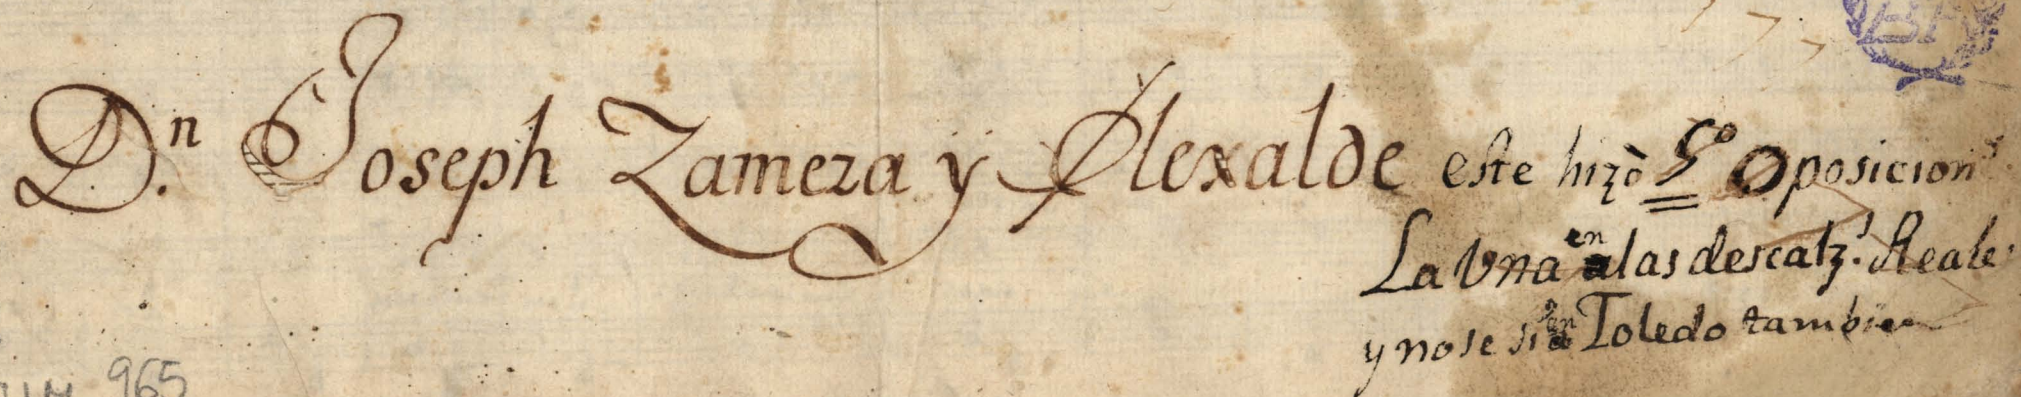 D.ⁿ Joseph Zameza y Elexalde este hizò 5º oposicionˢ
La Una en las descalz.ˢ Reales
y no se si en Toledo tambien
965